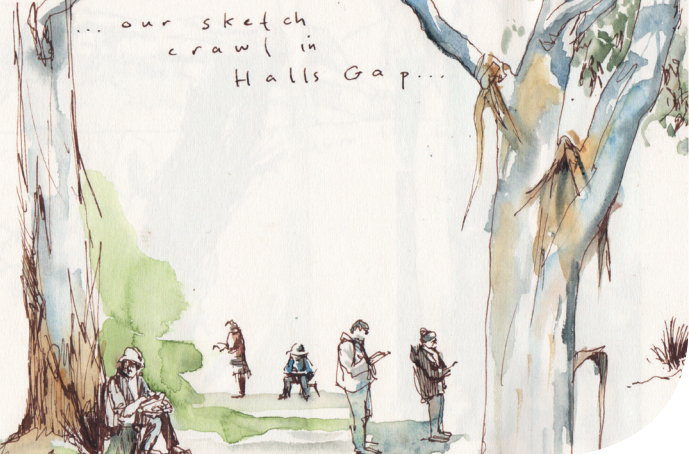 ...our sketch
crawl in
Halls Gap...